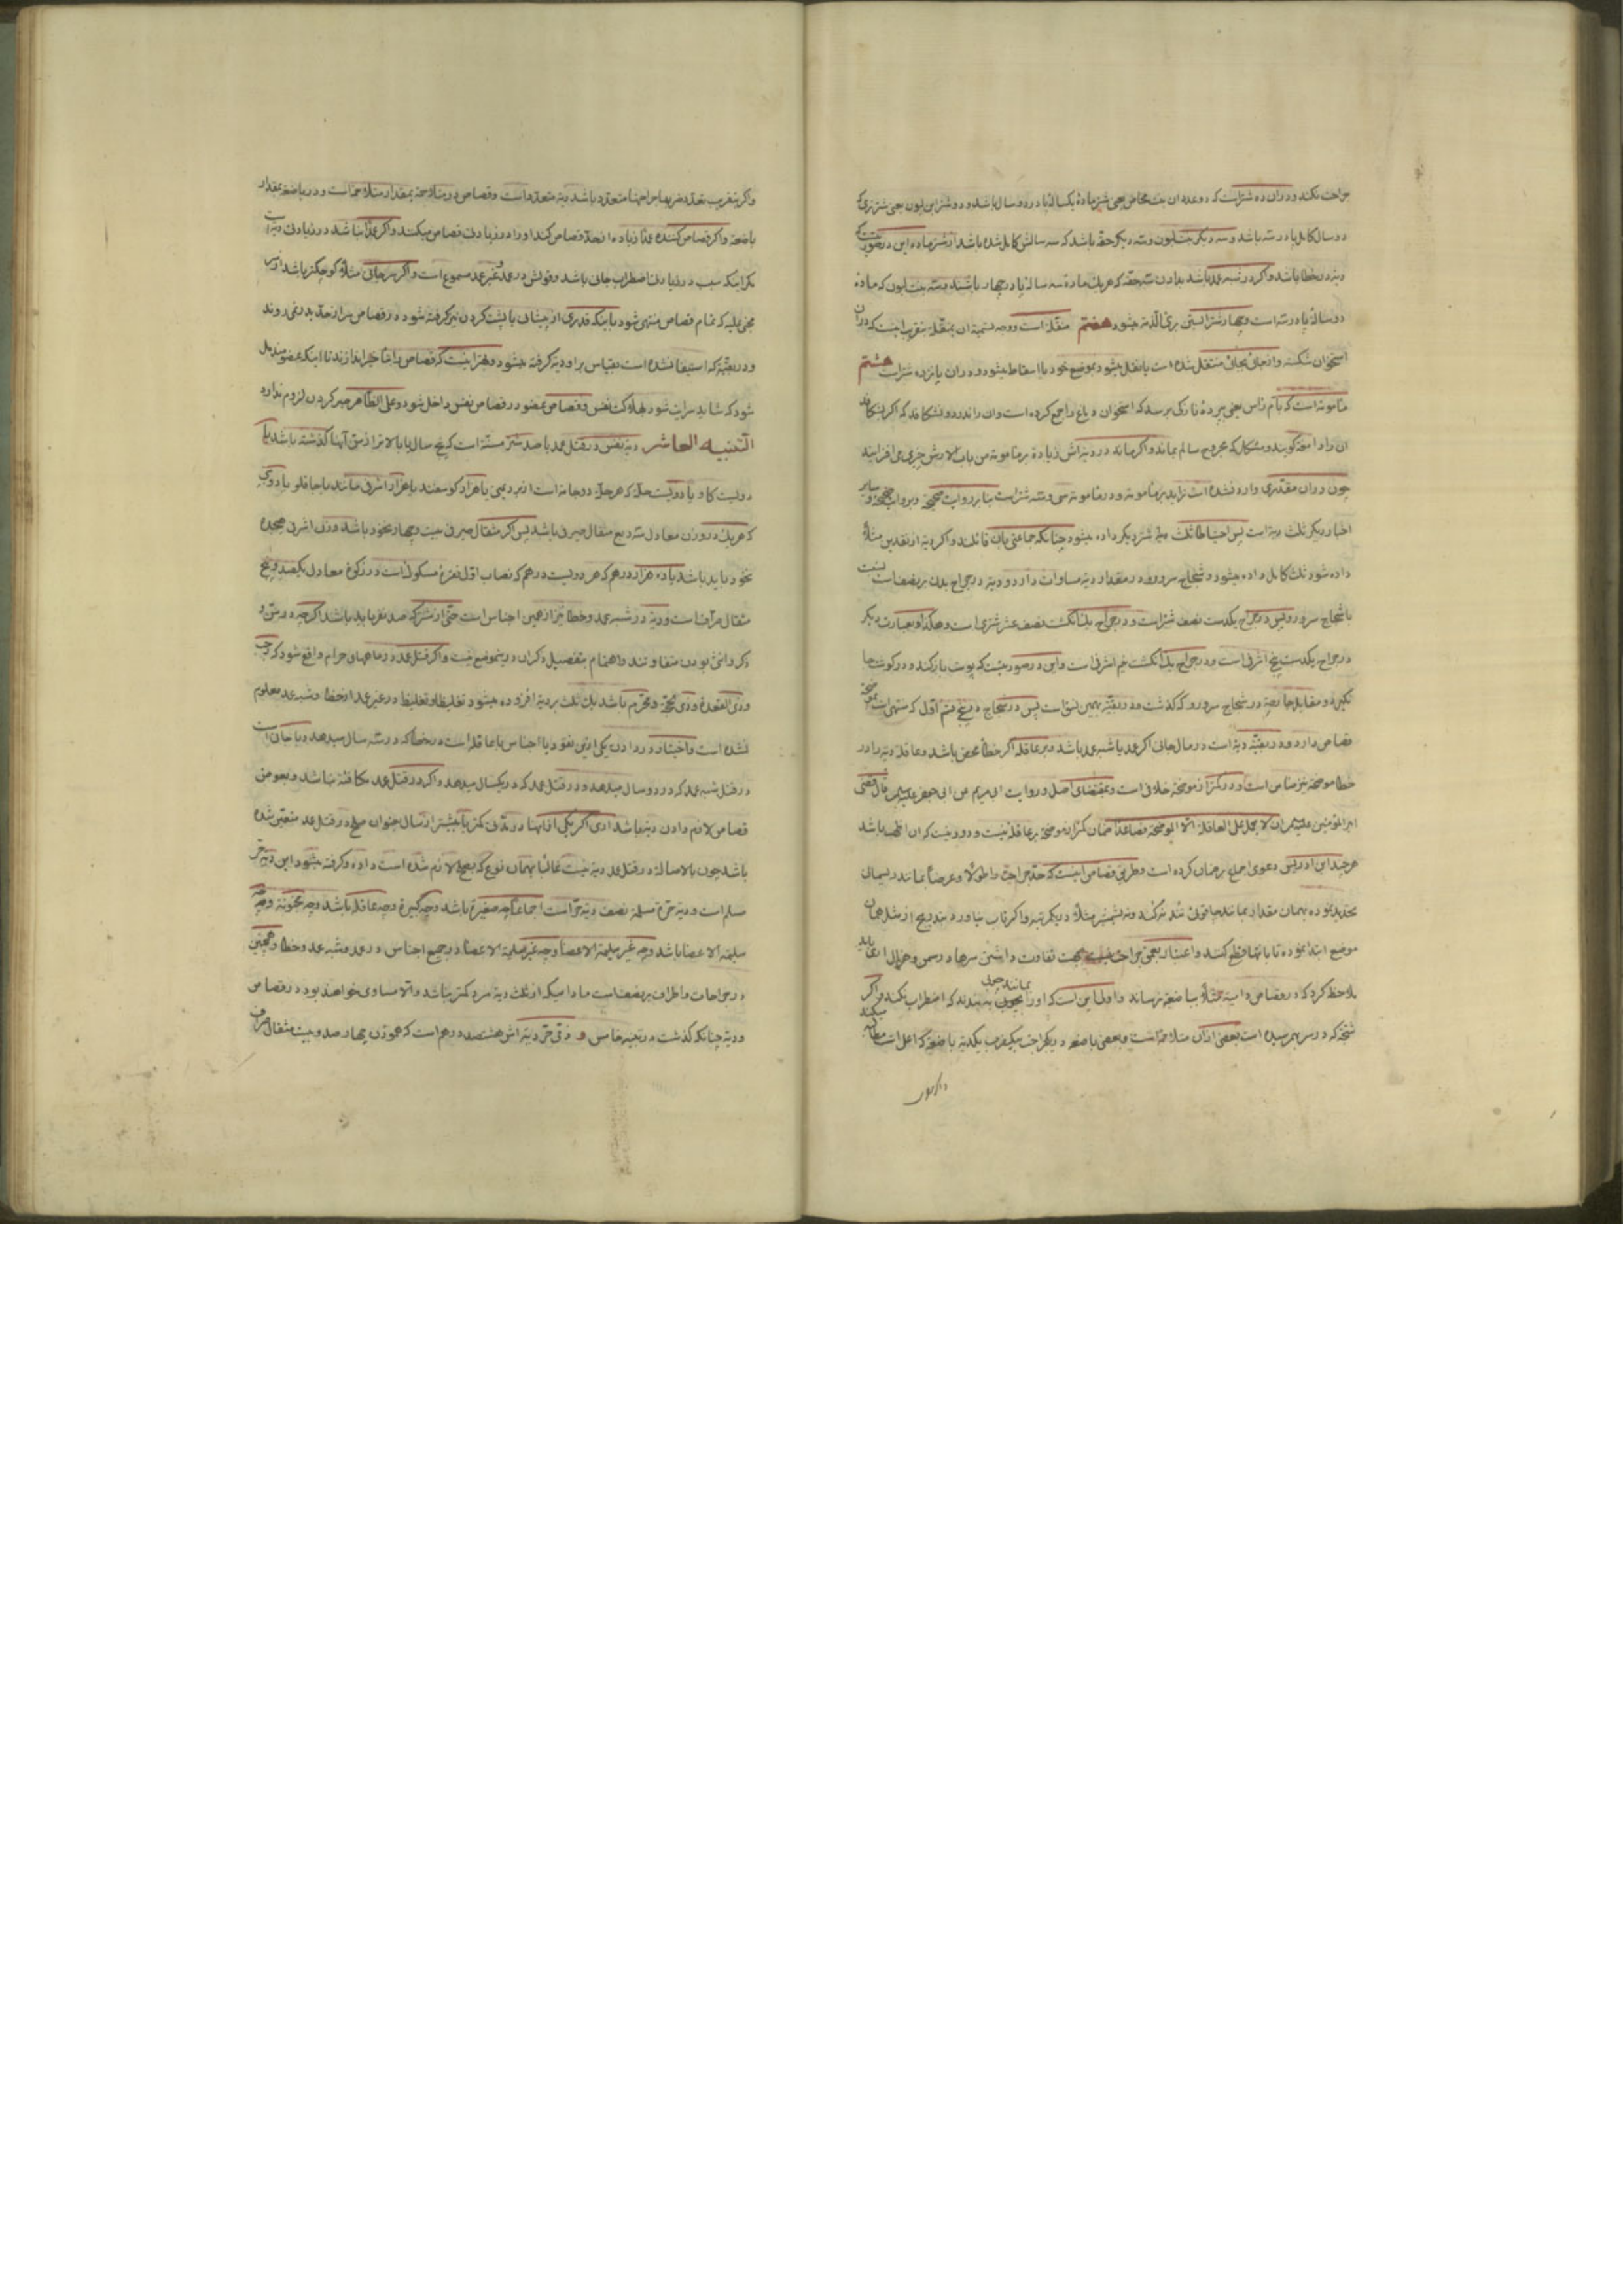 جراحت نکند و در ان ده شتر است که دو عدد ان بنت مخاض یعنی شتر مادهٔ یکساله پا در دو سال باشد و دو شتر ابن لبون یعنی شتر نری که
دو سال کامل پا در سه باشد و سه دیگر بنت لبون و سه دیگر حقه باشد که سه سالش کامل شده باشد از شتر ماده این در صورتیست که
دیه در خطا باشد و اکر در شبه عمد باشد بدادن سه حقه که هر یک مادهٔ سه ساله پا در چهار باشند و سه بنت لبون که مادهٔ
دو ساله پا در سه است و چهار شتر ابستن بریء الذمه میشود هفتم منقله است و وجه تسمیه ان بمنقله بتقریب اینست که در ان
استخوان شکسته و از جائی بجائی منتقل شده است یا نقل میشود بموضع خود یا اسقاط میشود و در ان پانزده شتر است هشتم
مأمومه است که بام راس یعنی پردهٔ نازکی برسد که استخوان دماغ را جمع کرده است و ان را ندرد و نشکافد که اکر بشکافد
ان را دامغه کویند و مشکل که مجروح سالم بماند و اکر ماند در دیه اش زیاده بر مأمومه من باب الارش چیزی می افزایند
چون در ان مقدری وارد نشده است زاید بر مأمومه و در مأمومه سی و سه شتر است بنابر روایت صحیحه و بروایت صحیحه و سایر
اخبار دیکر ثلث دیه است پس احتیاطا ثلث شتر دیکر داده میشود چنانکه جماعتی بان قائلند و اکر دیه از نقدین مثلا
داده شود ثلث کامل داده میشود و شجاج سر و رو در مقدار دیه مساوات دارد و دیه در جراح بدن بر نصف است نسبت
با شجاج سر و رو پس در جراح یکدست نصف شتر است و در جراح یک انکشت نصف عشر شتری است و هکذا و بعبارت دیکر
در جراح یکدست پنج اشرفی است و در جراح یک انکشت نیم اشرفی است و این در صورتیست که پوست باز کند و در کوشت جا
نکیرد و مقابل حارصه در شجاج سر و رو که کذشت و در بقیه بهمین نسق است پس در شجاج پنج قسم اول که منتهی است بموضحه
قصاص دارد و در بقیه دیه است در مال جانی اکر عمد یا شبه عمد باشد و بر عاقله اکر خطأ محض باشد و عاقله دیه را در
خطا موضحه نیز ضامن است و در کمتر از موضحه خلافی است و بمقتضای اصل و روایت ابی مریم عن ابی جعفر علیه السلام قال قضی
امیر المؤمنین علیه السلام ان لا یحمل علی العاقله الا الموضحه فصاعدا ضمان کمتر از موضحه بر عاقله نیست و دور نیست که ان اظهر باشد
هر چند ابن ادریس دعوی اجماع بر ضمان کرده است و طریق قصاص اینست که حد جراحت را طولا و عرضا بمانند ریسمانی
تحدید نموده بهمان مقدار بمانند چاقوئی تند نه کند و نه شمشیر مثلا در یکمرتبه و اکر تاب نیاورد بتدریج از مثل همان
موضع ابتدا نموده تا بانتها قطع کنند و اعتنا بعمق جراحت نیست بجهت تفاوت داشتن سرها در سمن و هزال اری باید
ملاحظه کرد که در قصاص دامیه مثلا بباضعه نرساند و اولی این است که او را بمانند چوبی به بندند که اضطراب نکند و اکر
شجه که در سر بهم رسیده است بعضی از ان متلاحمه است و بعضی باضعه در یکجراحت بیکضرب یکدیه باضعه که اعلی است مطالبه میکند
و اکر بتقریب تعدد ضربها جراحتها متعدد باشد دیه متعدد است و قصاص در متلاحمه بمقدار متلاحمه است و در باضعه بمقدار
باضعه و اکر قصاص کننده عمدا زیاده از حد قصاص کند او را در زیادتی قصاص میکنند و اکر عمدا نباشد در زیادتی دیه است
مکر اینکه سبب در زیادتی اضطراب جانی باشد و قولش در عمد و غیر عمد مسموع است و اکر سر جانی مثلا کوچکتر باشد از سر
مجنی علیه که تمام قصاص منتهی شود باینکه قدری از پیشانی یا پشت کردن نیز کرفته شود در قصاص سر از حد بدر نمی روند
و در بقیه که استیفا نشده است بقیاس بر او دیه کرفته میشود و بهتر اینست که قصاص را بتأخیر اندازند تا اینکه عضو مندمل
شود که شاید سرایت شود بهلاکت نفس و قصاص عضو در قصاص نفس داخل شود و علی الظاهر صبر کردن لزوم نداره
التنبیه العاشر دیه نفس در قتل عمد یا صد شتر مسنه است که پنج سال یا بالاتر از سن آنها کذشته باشد یا
دویست کاو یا دویست حله که هر حله دو جامه است از برد یمنی یا هزار کوسفند یا هزار اشرفی مانند باجاقلو یا دوکی
که هر یک در وزن معادل سه ربع مثقال صیرفی باشد پس اکر مثقال صیرفی بیست و چهار نخود باشد وزن اشرفی هیجده
نخود باید باشد یا ده هزار درهم که هر دویست درهم که نصاب اول نقره مسکوک است در زکوة معادل یکصد و پنج
مثقال صرافیست و دیه در شبه عمد و خطا نیز از همین اجناس است حتی از شتر که صد نفر باید باشد اکر چه در سن و
ذکر و انثی بودن متفاوتند و اهتمام بتفصیل ذکر ان در اینموضع نیست و اکر قتل عمد در ماههای حرام واقع شود که رجب
و ذی القعده و ذی حجه و محرم باشد یک ثلث بر دیه افزوده میشود تغلیظا و تغلیظ در غیر عمد از خطا و شبه عمد معلوم
نشده است و اختیار در دادن یکی از این نقود یا اجناس با عاقله است در خطا که در سه سال میدهد و با جانی است
در قتل شبه عمد که در دو سال میدهد و در قتل عمد که در یکسال میدهد و اکر در قتل عمد مکافئه نباشد و بعوض
قصاص لازم دادن دیه باشد اری اکر یکی از اینها در مدت کمتر یا بیشتر از سال بعنوان صلح در قتل عمد متعین شده
باشد چون بالاصاله در قتل عمد دیه نیست غالبا بهمان نوع که بصلح لازم شده است داده و کرفته میشود این دیه حر
مسلم است و دیه حره مسلمه نصف دیه حر است اجماعا چه صغیره باشد و چه کبیره و چه عاقله باشد و چه مجنونه و چه
سلیمه الاعضا باشد و چه غیر سلیمه الاعضا در جمیع اجناس در عمد و شبه عمد و خطا و همچنین
در جراحات و اطراف بر نصف است مادامیکه از ثلث دیه مرد کمتر نباشد و الا مساوی خواهند بود در قصاص
و دیه چنانکه کذشت در تنبیه خامس و ذمی حر دیه اش هشتصد درهم است که هموزن چهار صد و بیست مثقال صرافی